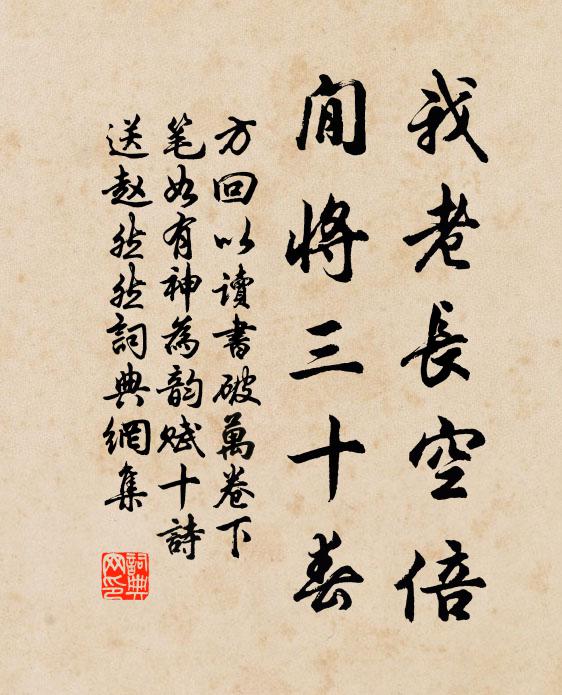 我老長空倍
閒將三十春
方回以讀書破萬卷下
笔如有神為韵賦十詩
送赵然然詞典網集
詞典
网印